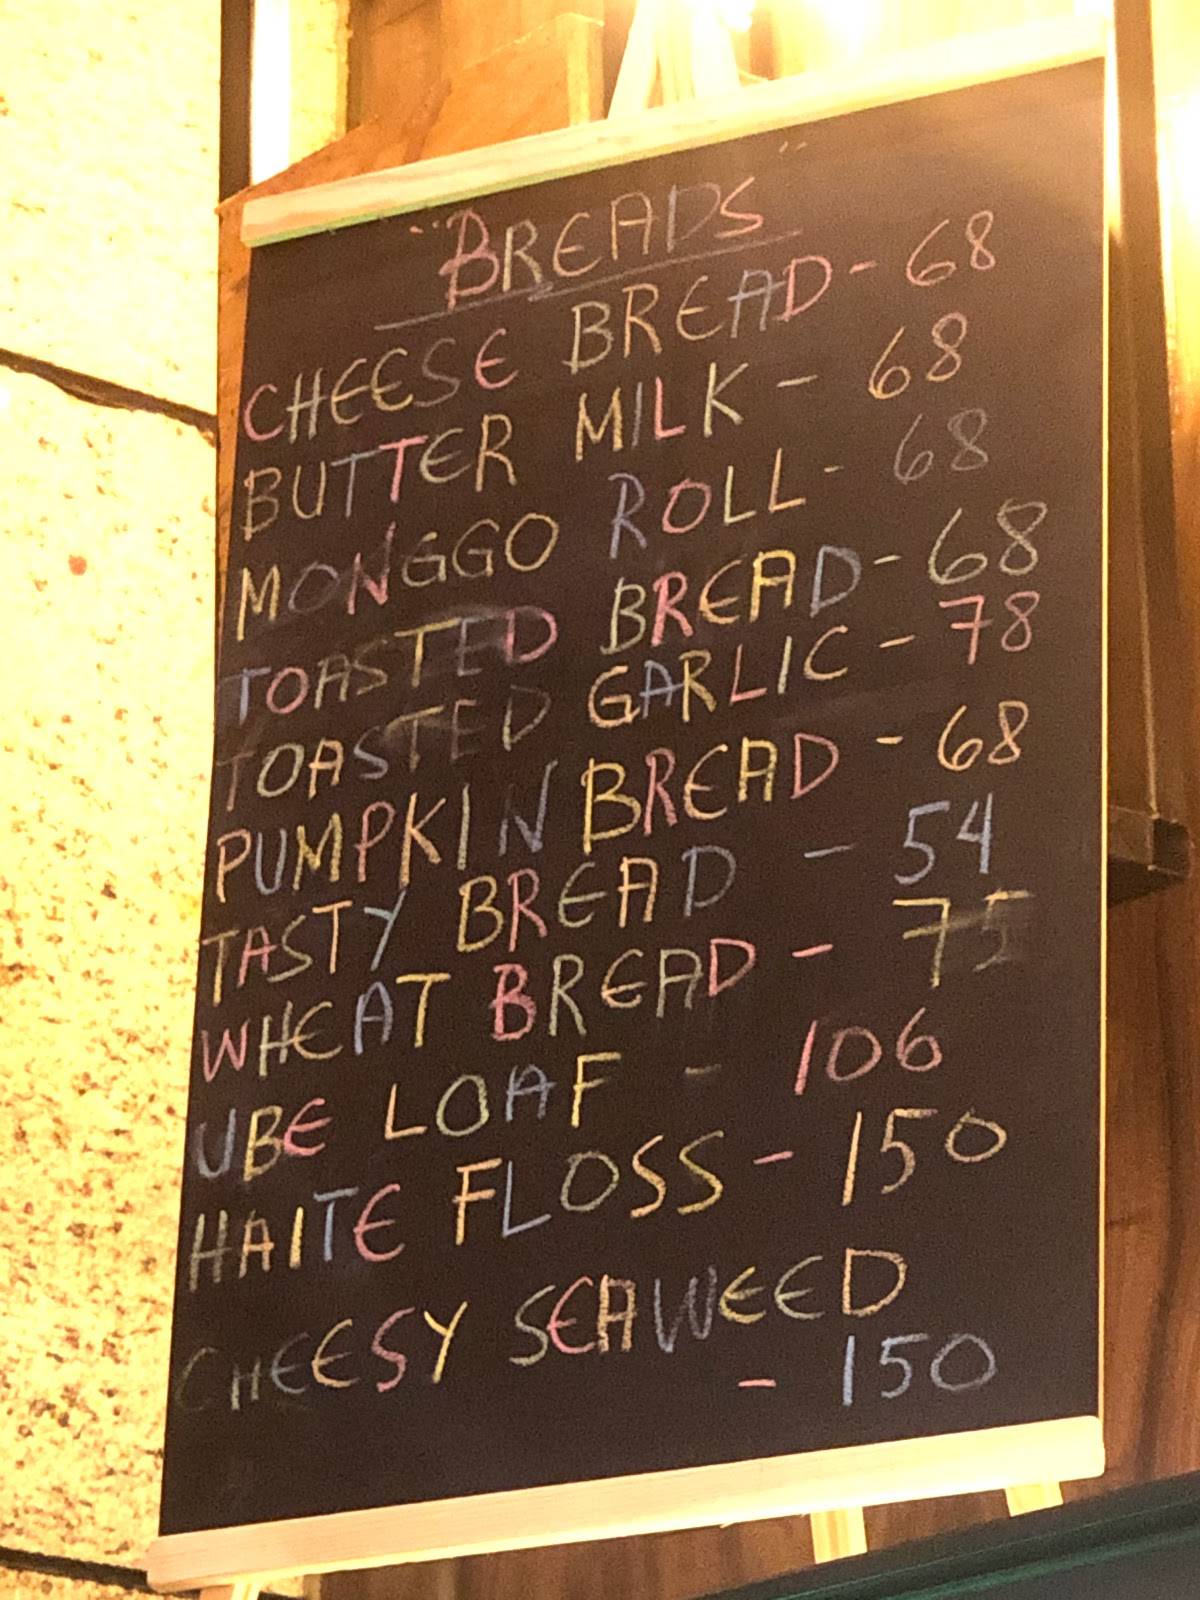 "BREADS"
CHEESE BREAD - 68
BUTTER MILK - 68
MONGGO ROLL - 68
TOASTED BREAD - 68
TOASTED GARLIC - 78
PUMPKIN BREAD - 68
TASTY BREAD - 54
WHEAT BREAD - 75
UBE LOAF - 106
HAITE FLOSS - 150
CHEESY SEAWEED
- 150